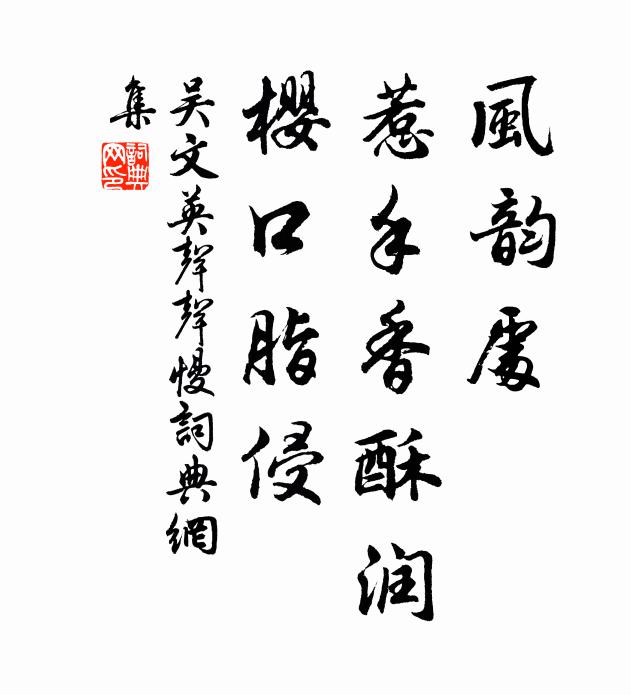 風韵處
惹手香酥润
櫻口脂侵
吴文英聲聲慢詞典網
集
詞典網印